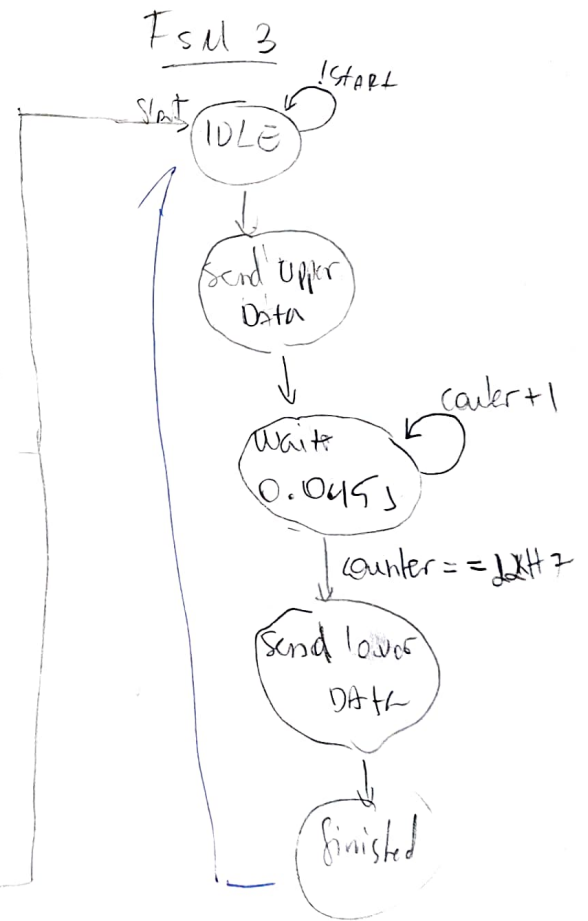 FSM 3
!START
Start
IDLE
Send Upper
Data
counter+1
Wait
0.045s
counter ==
Send lower
DATA
finished